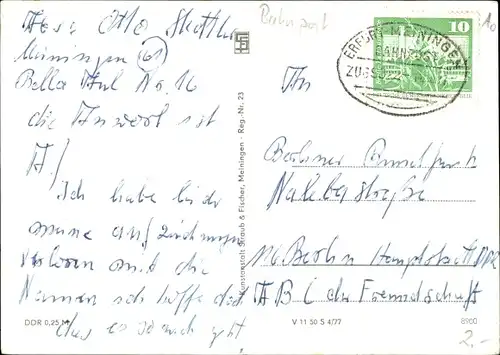 Otto
Meiningen 61
Bella Aul No. 16
die Antwort ist
A!
Ich habe leider
meine aufzeichnungen
verloren mit die
Namen ich hoffe daß
das so
DDR 0,25 M
Kunstanstalt Straub & Fischer, Meiningen - Reg.-Nr. 23
V 11 50 S 4/77
8900
2.-
Berlin post
10
ERFURT-MEININGEN
BAHNPOST
ZUG
An
Berliner Rundfunk
Nalepastraße
116 Berlin Hauptstatt DDR
AB C der Freundschaft